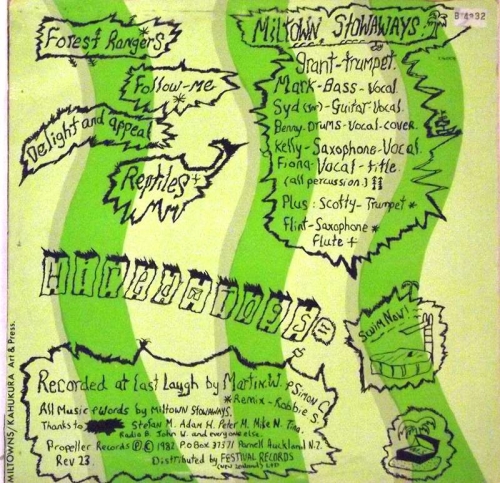 Forest Rangers
Follow-me
*
Delight and appeal
Reptiles +
MILTOWN STOWAWAYS.
by
Grant-trumpet
Mark-Bass-Vocal
Syd (sr)-Guitar Vocal.
Benny-Drums-Vocal-cover.
Kelly-Saxophone-Vocal.
Fiona-Vocal-title.
(all percussion.)
Plus: Scotty-Trumpet *
Flint-Saxophone *
Flute +
Swim Now!
Recorded at Last Laugh by Martin.W. & Simon C
*Remix-Robbie S.
All Music & Words by Miltown Stowaways.
Thanks to Stefan M. Adam H. Peter M. Mike N. Tina.
Radio B. John W. and everyone else.
Propeller Records Ⓟ © 1982. P.O Box 37371 Parnell Auckland N.Z.
Rev 23. Distributed by FESTIVAL RECORDS
(New Zealand's) LTD
MILTOWNS/KAHUKURA Art & Press.